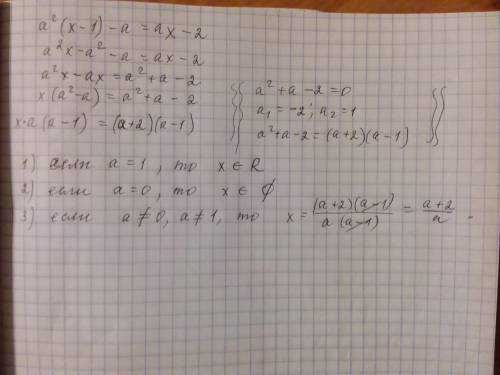 a²(x-1)-a = ax-2
a²x-a²-a = ax-2
a²x-ax = a²+a-2
x(a²-a) = a²+a-2
x·a(a-1) = (a+2)(a-1)
a²+a-2=0
a₁=-2; a₂=1
a²+a-2=(a+2)(a-1)
1) если a=1, то x∈R
2) если a=0, то x∈∅
3) если a≠0, a≠1, то x = (a+2)(a-1)/a(a-1) = a+2/a.